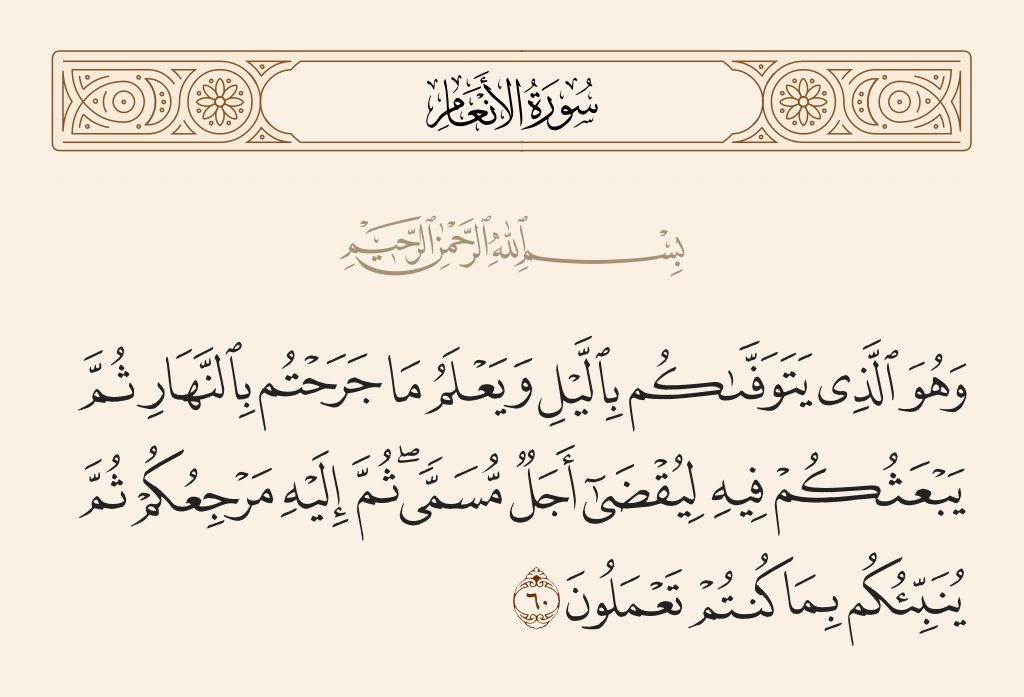 سُورَةُ الأَنْعَامِ
بِسْمِ ٱللَّهِ ٱلرَّحْمَٰنِ ٱلرَّحِيمِ
وَهُوَ ٱلَّذِى يَتَوَفَّىٰكُم بِٱلَّيْلِ وَيَعْلَمُ مَا جَرَحْتُم بِٱلنَّهَارِ ثُمَّ
يَبْعَثُكُمْ فِيهِ لِيُقْضَىٰٓ أَجَلٌ مُّسَمًّى ۖ ثُمَّ إِلَيْهِ مَرْجِعُكُمْ ثُمَّ
يُنَبِّئُكُم بِمَا كُنتُمْ تَعْمَلُونَ ٦٠